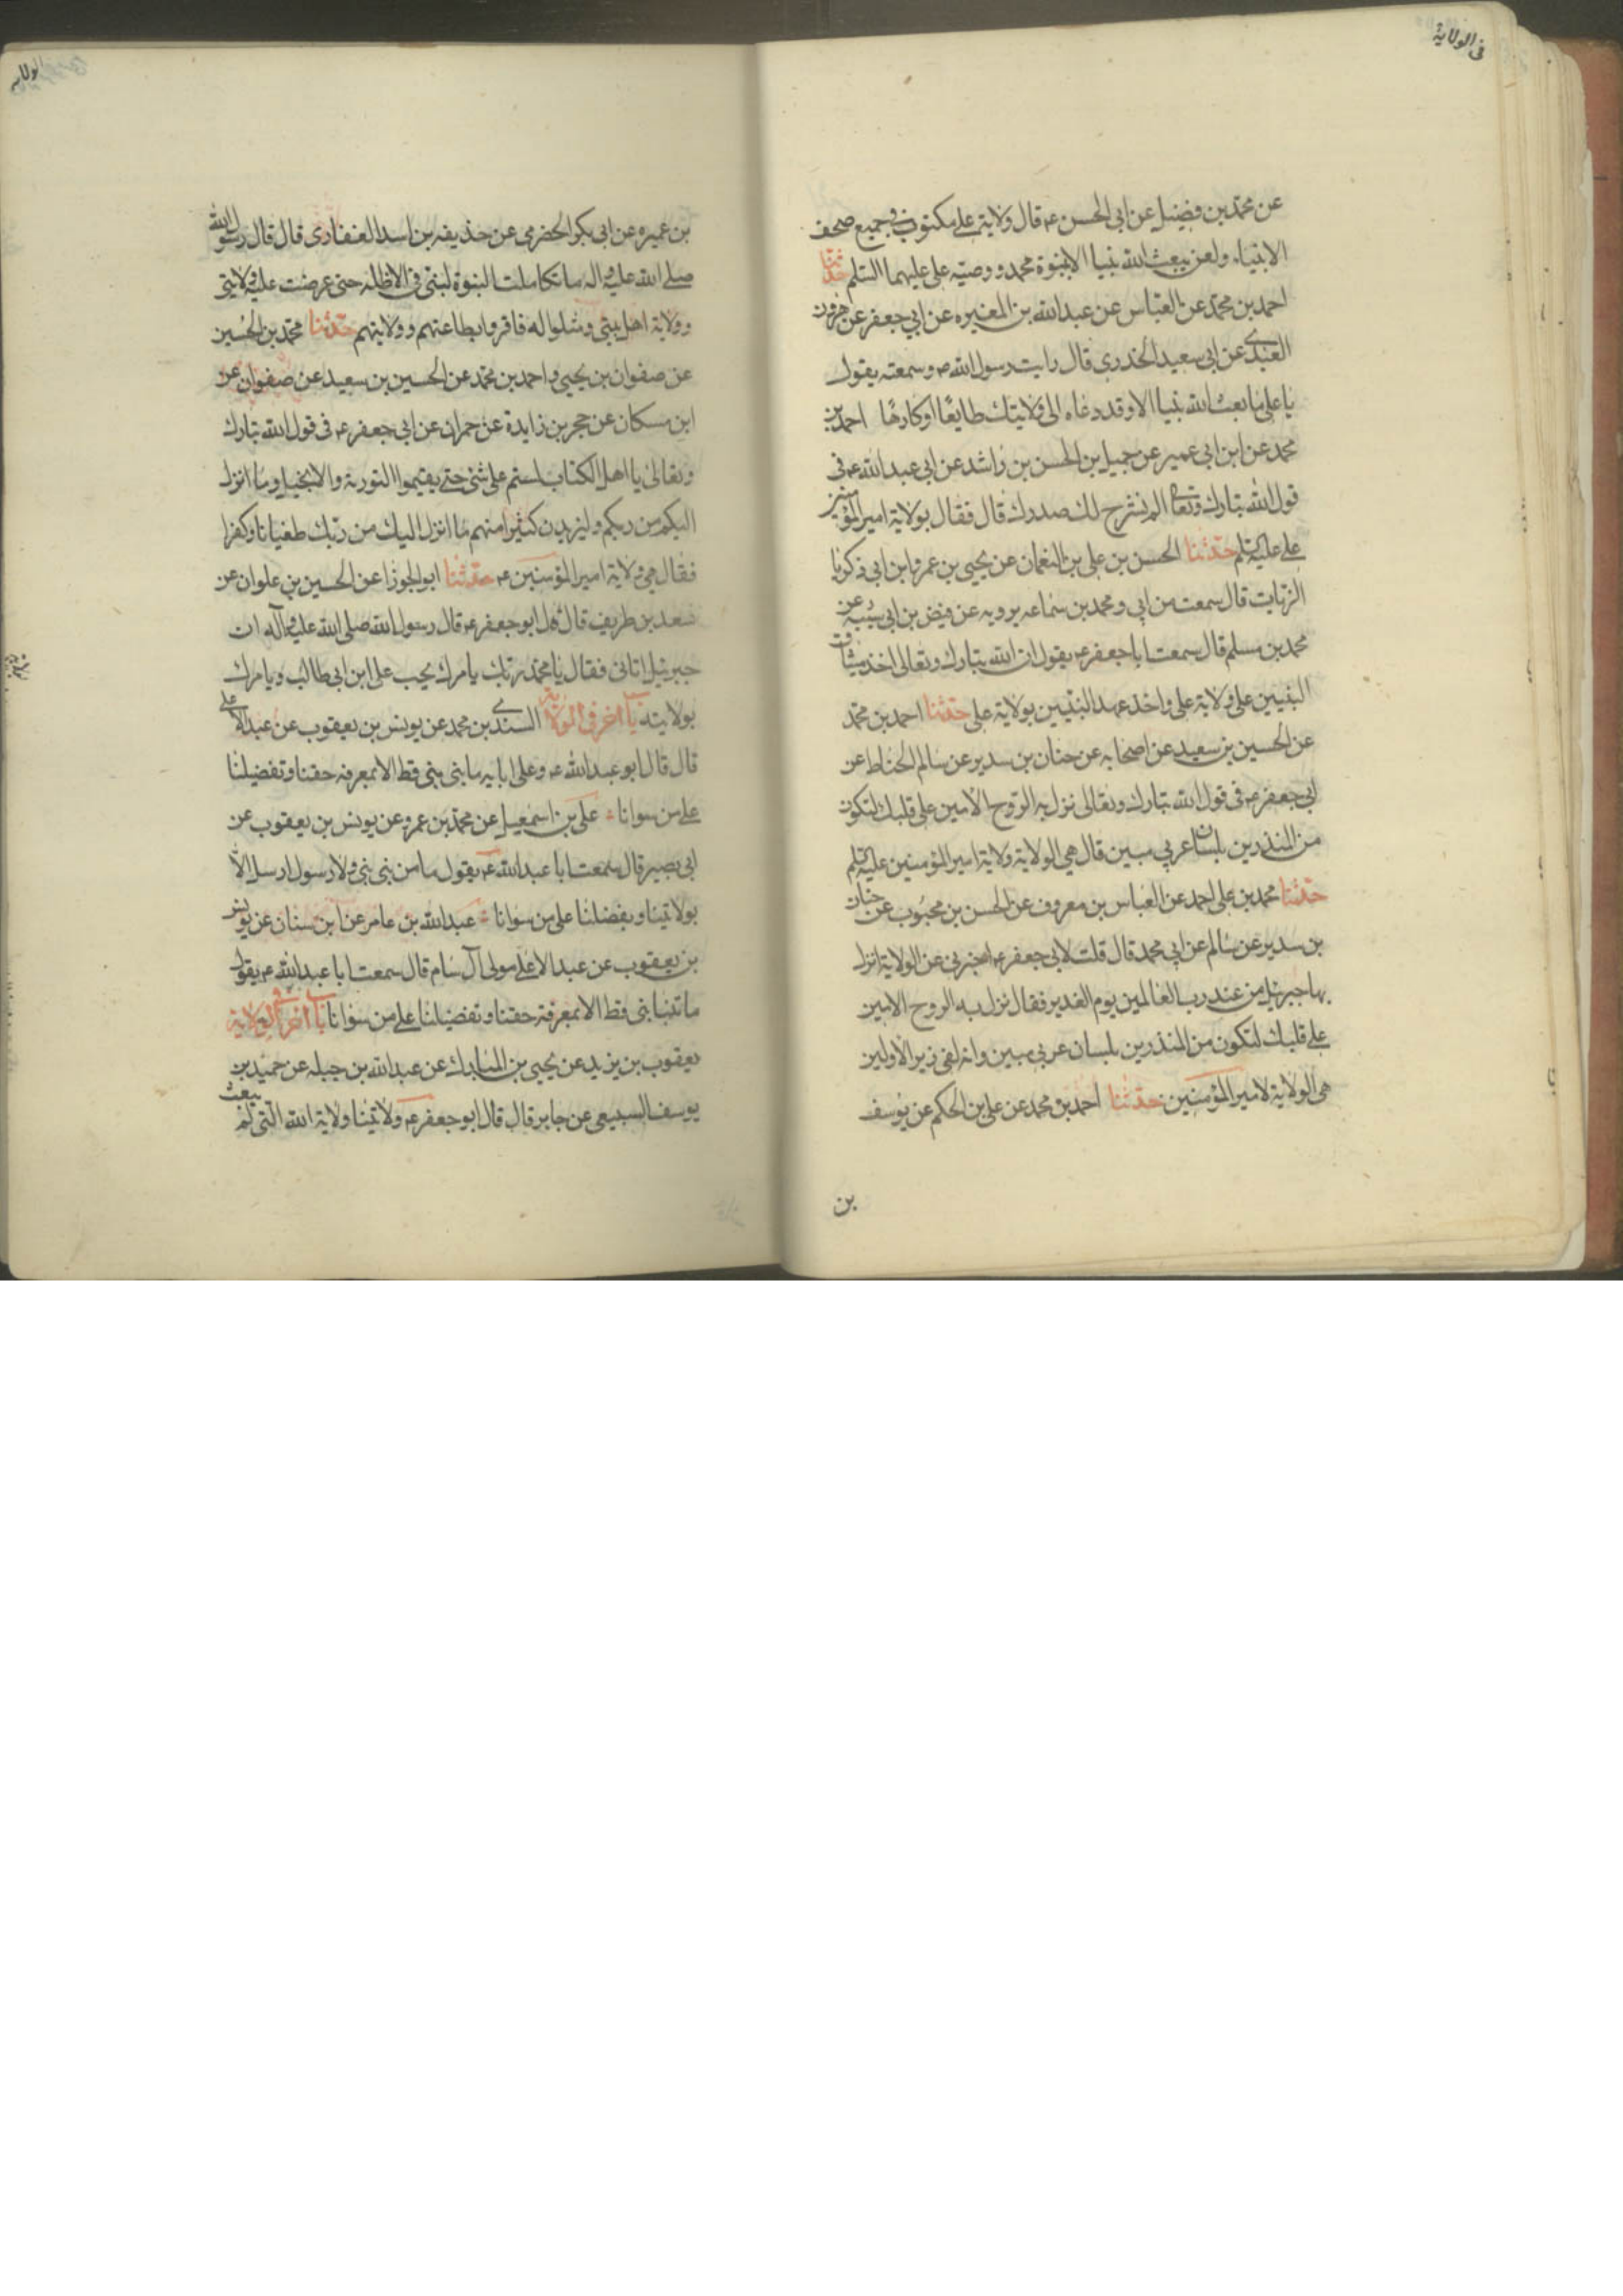 في الولاية
عن محمد بن فضيل عن ابي الحسن ع قال ولاية علي مكتوب في جميع صحف
الانبياء ولن يبعث الله نبيا الا بنبوة محمد ووصيه علي عليهما السلم حدثنا
احمد بن محمد عن العباس عن عبد الله بن المغيره عن ابي جعفر عن هرون
العبدي عن ابي سعيد الخدري قال رايت رسول الله ص وسمعته يقول
يا علي ما بعث الله نبيا الا وقد دعاه الى ولايتك طايعا او كارها احمد بن
محمد عن ابن ابي عمير عن جميل بن الحسن بن راشد عن ابي عبد الله ع في
قول الله تبارك وتعالى الم نشرح لك صدرك قال فقال بولاية امير المؤمنين
علي عليه السلم حدثنا الحسن بن علي بن النعمان عن يحيى بن عمر وابن ابي زكريا
الزيات قال سمعت من ابي ومحمد بن سماعه يرويه عن فيض بن ابي شيبه عن
محمد بن مسلم قال سمعت ابا جعفر ع يقول ان الله تبارك وتعالى اخذ ميثاق
النبيين على ولاية علي واخذ عهد النبيين بولاية علي حدثنا احمد بن محمد
عن الحسين بن سعيد عن اصحابه عن حنان بن سدير عن سالم الحناط عن
ابي جعفر ع في قول الله تبارك وتعالى نزل به الروح الامين على قلبك لتكون
من المنذرين بلسان عربي مبين قال هي الولاية ولاية امير المؤمنين عليه السلم
حدثنا محمد بن علي احمد عن العباس بن معروف عن الحسن بن محبوب عن حنان
بن سدير عن سالم عن ابي محمد قال قلت لابي جعفر ع اخبرني عن الولاية انزل
بها جبرئيل من عند رب العالمين يوم الغدير فقال نزل به الروح الامين
على قلبك لتكون من المنذرين بلسان عربي مبين وانه لفي زبر الاولين
هي الولاية لامير المؤمنين حدثنا احمد بن محمد عن علي بن الحكم عن يوسف
بن
بن عميره عن ابي بكر الحضرمي عن حذيفه بن اسد الغفاري قال قال رسول الله
صلى الله عليه واله ما تكاملت النبوة لنبي في الاظله حتى عرضت عليه ولايتي
وولاية اهل بيتي ومثلوا له فاقروا بطاعتهم وولايتهم حدثنا محمد بن الحسين
عن صفوان بن يحيى واحمد بن محمد عن الحسين بن سعيد عن صفوان عن
ابن مسكان عن حجر بن زايدة عن حمران عن ابي جعفر ع في قول الله تبارك
وتعالى يا اهل الكتاب لستم على شئ حتى يقيموا التورية والانجيل وما انزل
اليكم من ربكم وليزيدن كثيرا منهم ما انزل اليك من ربك طغيانا وكفرا
فقال هي ولاية امير المؤمنين ع حدثنا ابو الجوزا عن الحسين بن علوان عن
سعد بن طريف قال قال ابو جعفر ع قال رسول الله صلى الله عليه وآله ان
جبرئيل اتاني فقال يا محمد ربك يامرك بحب علي ابن ابي طالب ويامرك
بولايته باب اخر في الولاية السندي بن محمد عن يونس بن يعقوب عن عبد الاعلى
قال قال ابو عبد الله ع وعلى ابايه ما نبئ نبي قط الا بمعرفه حقنا وتفضيلنا
على من سوانا علي بن اسمعيل عن محمد بن عمرو عن يونس بن يعقوب عن
ابي بصير قال سمعت ابا عبد الله ع يقول ما من نبي نبئ ولا رسول ارسل الا
بولايتنا وبفضلنا على من سوانا عبد الله بن عامر عن ابن سنان عن يونس
بن يعقوب عن عبد الاعلى مولى آل سام قال سمعت ابا عبد الله ع يقول
ما تنبا نبي قط الا بمعرفة حقنا وتفضيلنا على من سوانا باب اخر في الولاية
يعقوب بن يزيد عن يحيى بن المبارك عن عبد الله بن جبله عن حميد بن
يوسف السبيعي عن جابر قال قال ابو جعفر ع ولايتنا ولاية الله التي لم يبعث